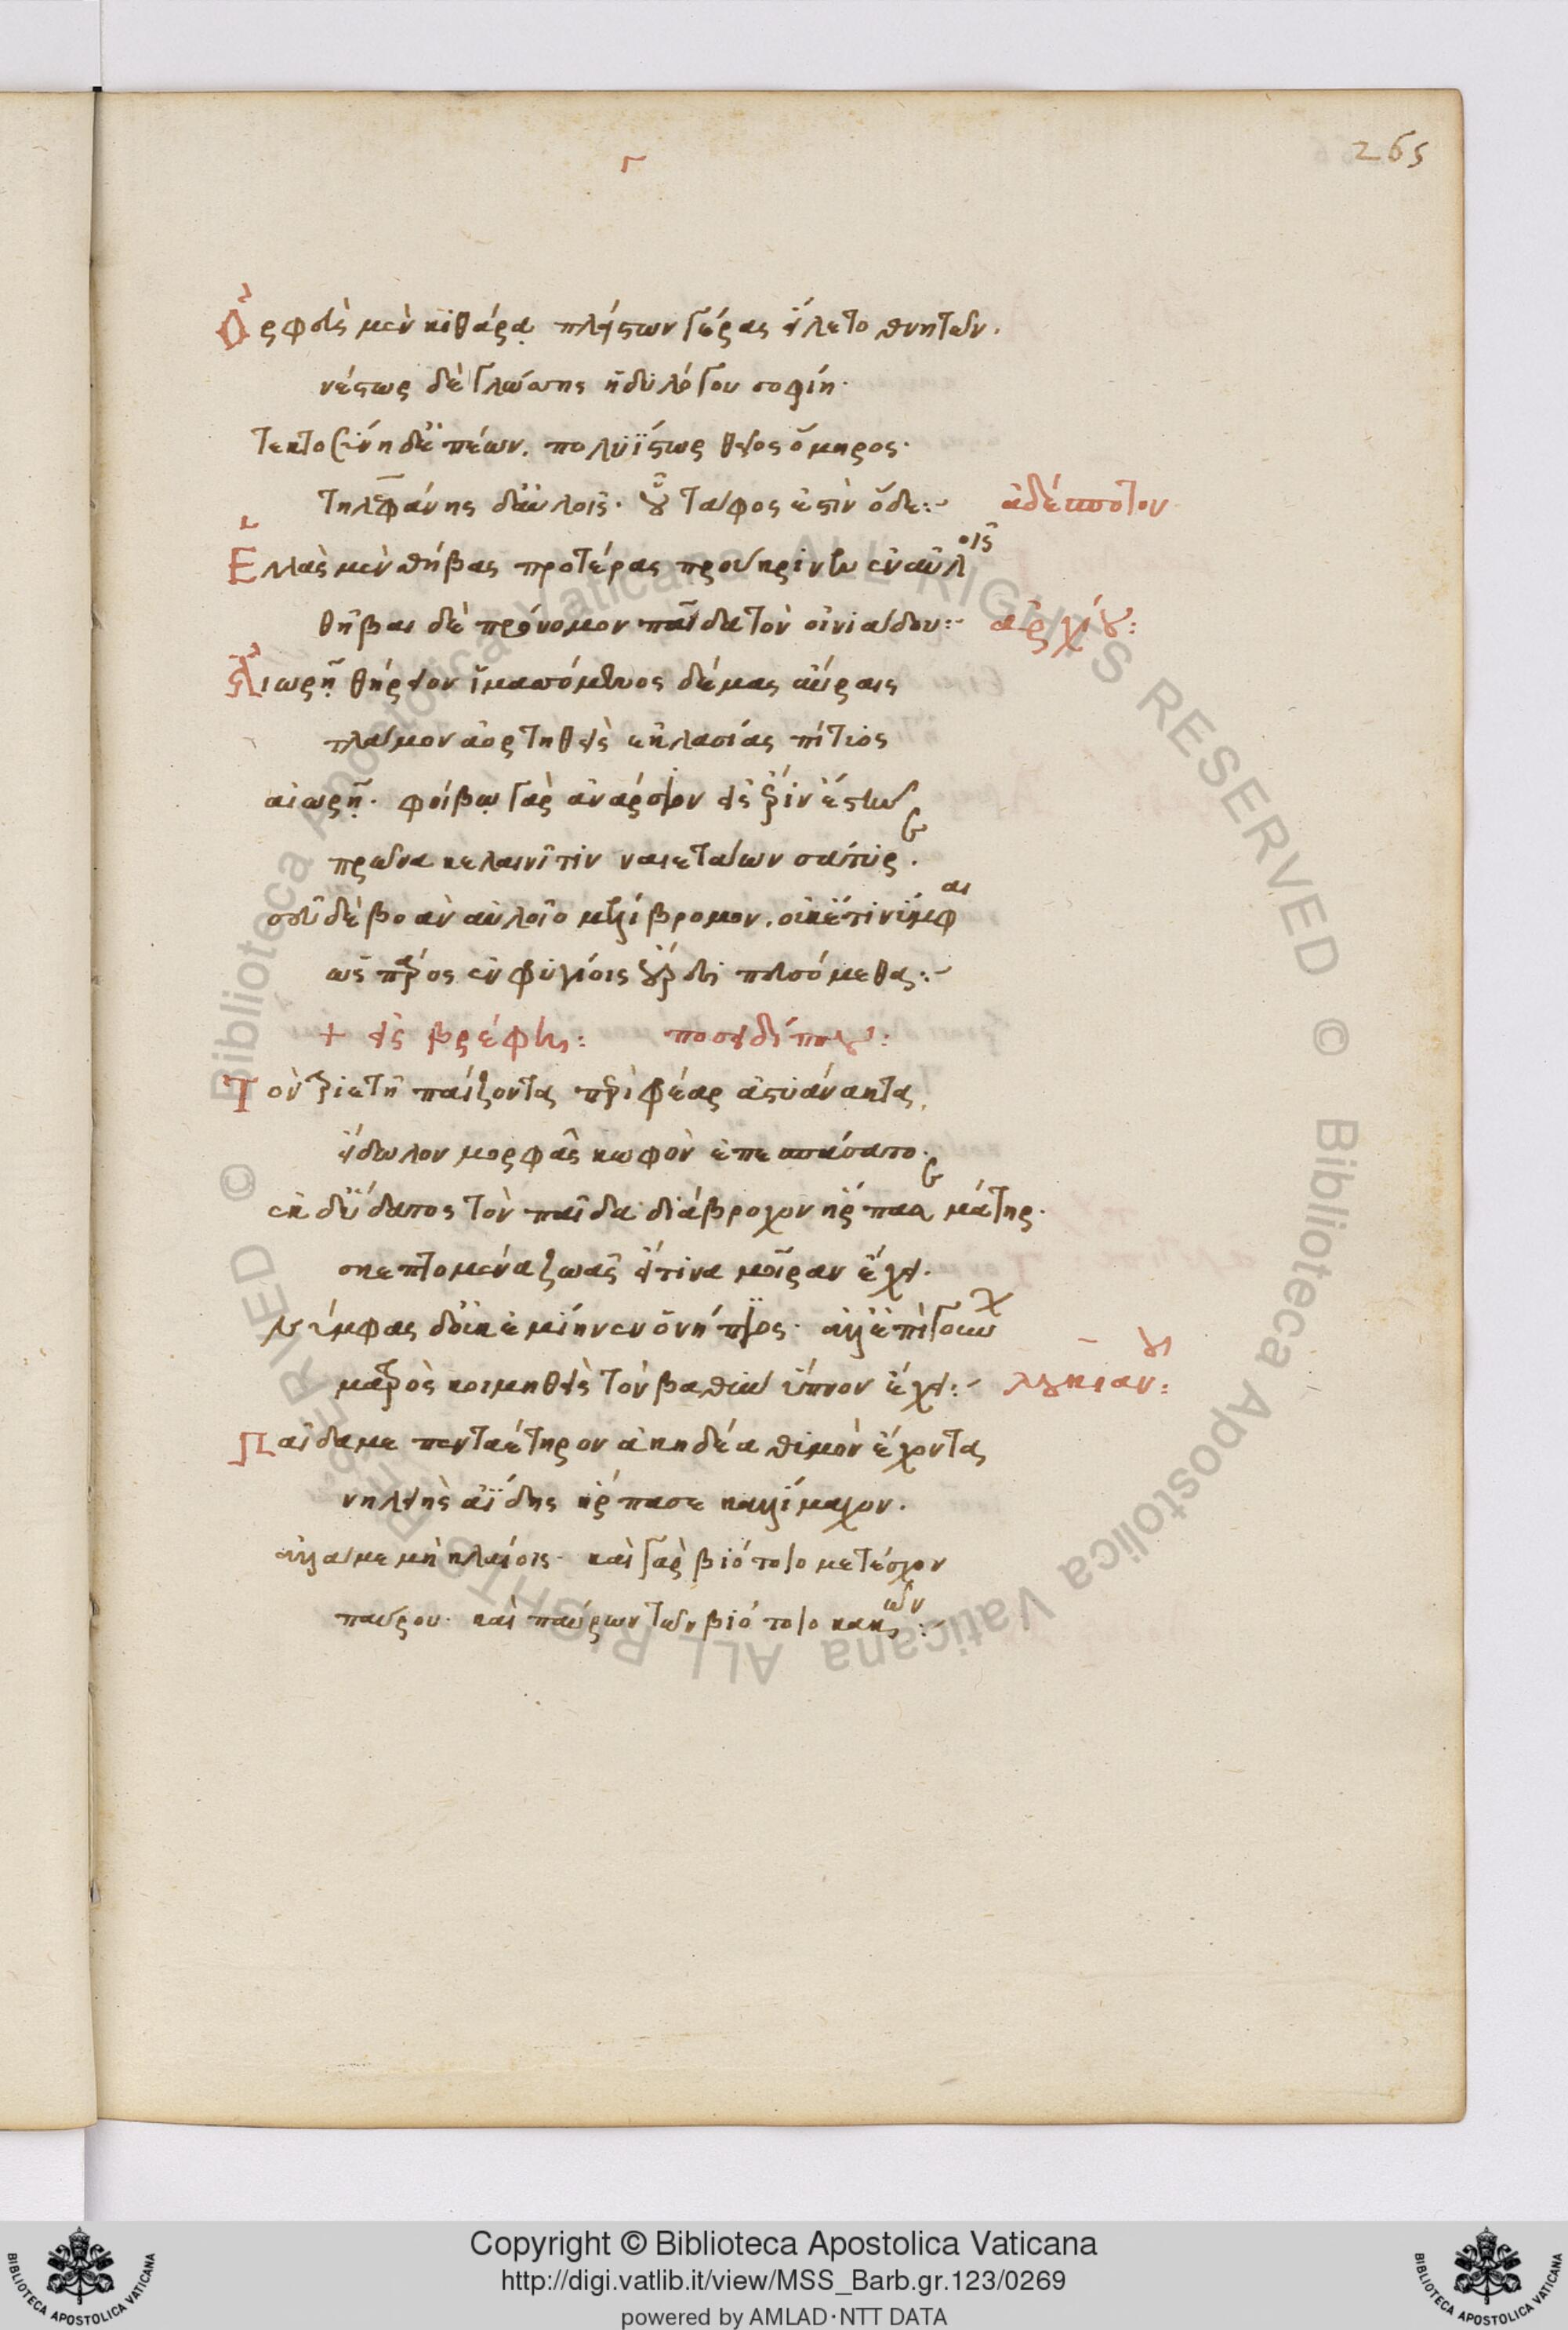 265
γ
Ὀρφεὺς μὲν κιθάρᾳ πλεῖστων γέρας εἵλετο θνητῶν.
νέστωρ δὲ γλώσσης ἡδυλόγου σοφίῃ.
τεκτοσύνῃ δ' ἐπέων. πολυΐστωρ θεῖος ὅμηρος.
τηλεφάνης δ' αὐλοῖς. οὗ τάφος ἐστὶν ὅδε:- ἀδέσποτον
Ἑλλὰς μὲν θήβας προτέρας προύκρινεν ἐν αὐλοῖς
θῆβαι δὲ πρόνομον παῖδα τὸν οἰνιάδου:- ἀρχίου:
Αἰωρῇ θήρειον ἱμασσόμενος δέμας αὔραις
τλάμον ἀορτηθεὶς ἐκ λασίας πίτυος
αἰωρῇ. φοίβῳ γὰρ ἀνάρσιον εἰς ἔριν ἔστης
πρῶνα κελαινῖτιν ναιετάων σάτυρ.
σεῦ δὲ βοὰν αὐλοῖο μελίβρομον. οὐκέτι νύμφαι
ὡς πάρος ἐν φρυγίοις οὔρεσι πευσόμεθα:-
+ εἰς βρέφη: ποσειδίππου:
Τὸν τριετῆ παίζοντα περὶ φρέαρ ἀστυάνακτα
εἴδωλον μορφᾶς κωφὸν ἐπεσπάσατο.
ἐκ δ' ὕδατος τὸν παῖδα διάβροχον ἥρπασε μάτηρ.
σκεπτομένα ζωᾶς εἴ τινα μοῖραν ἔχει.
νύμφας δ' οὐκ ἐμίηνεν ὁ νήπιος. ἀλλ' ἐπὶ γούνων
ματρὸς κοιμηθεὶς τὸν βαθὺν ὕπνον ἔχει:- λουκιανοῦ:
Παῖδα με πενταέτηρον ἀκηδέα θυμὸν ἔχοντα
νηλειὴς ἀΐδης ἥρπασε καλλίμαχον.
ἀλλά με μὴ κλαίοις. καὶ γὰρ βιότοιο μετέσχον
παύρου. καὶ παύρων τῶν βιότοιο κακῶν:-
Copyright © Biblioteca Apostolica Vaticana
http://digi.vatlib.it/view/MSS_Barb.gr.123/0269
powered by AMLAD·NTT DATA
BIBLIOTECA APOSTOLICA VATICANA
BIBLIOTECA APOSTOLICA VATICANA
© Biblioteca Apostolica Vaticana ALL RIGHTS RESERVED © Biblioteca Apostolica Vaticana ALL RIGHTS RESERVED